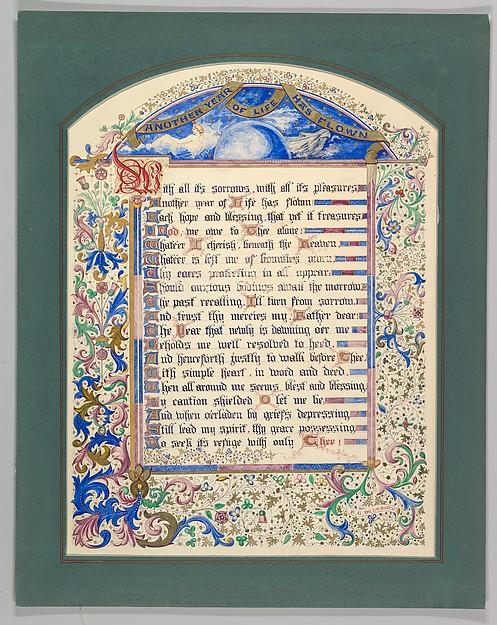 ANOTHER YEAR OF LIFE HAS FLOWN
With all it's sorrows, with all it's pleasures
Another year of Life has flown
Each hope and blessing, that yet it treasures
O God, we owe to Thee alone;
Whate'er I cherish, beneath the Heaven
Whate'er is left me of bounties
Thy cares protecting in all appear
Should anxious bodings await the morrow
The past recalling, I'll turn from sorrow
And trust thy mercies my Father dear
The Year that newly is dawning o'er me
Beholds me well resolved to heed,
And henceforth justly to walk before Thee,
With simple heart, in word and deed.
When all around me seems blest and blessing,
By caution shielded O let me be,
And when o'erladen by griefs depressing
Still lead my spirit, thy grace possessing
To seek it's refuge with only Thee!